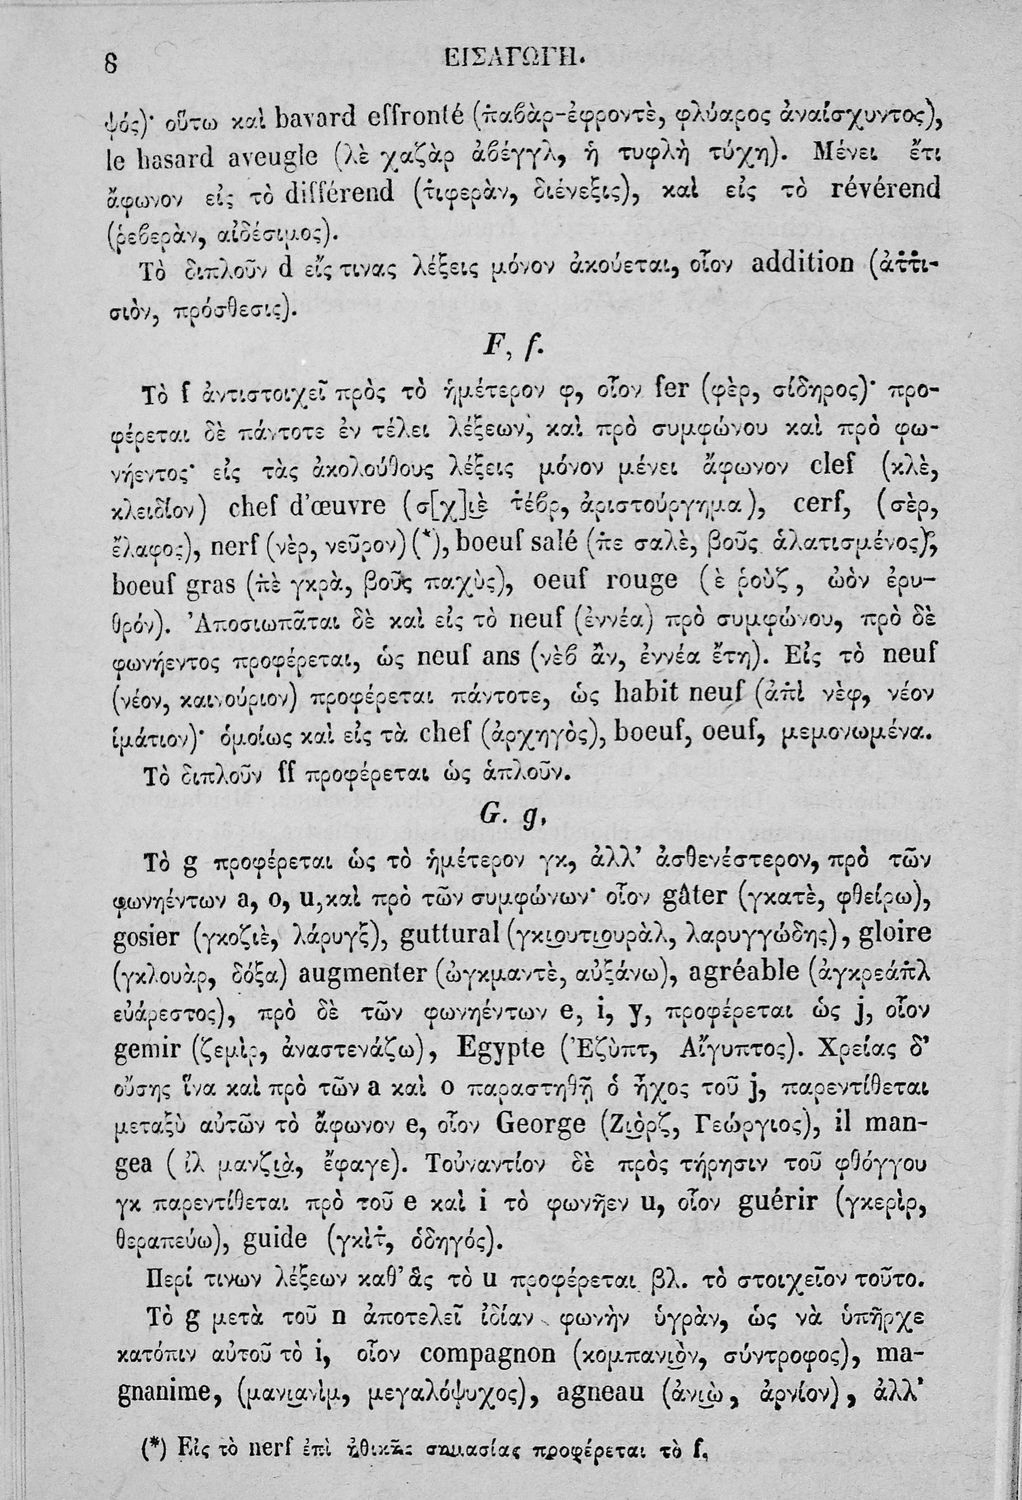 8 ΕΙΣΑΓΩΓΗ.
ψός)· οὕτω καὶ bavard effronté (π̇αβὰρ-ἐφροντὲ, φλύαρος ἀναίσχυντος),
le hasard aveugle (λὲ χαζὰρ ἀβέγγλ, ἡ τυφλὴ τύχη). Μένει ἔτι
ἄφωνον εἰς τὸ différend (τ̇ιφερὰν, διένεξις), καὶ εἰς τὸ révérend
(ῥεβερὰν, αἰδέσιμος).
Τὸ διπλοῦν d εἴς τινας λέξεις μόνον ἀκούεται, οἷον addition (ἀτ̇τ̇ι-
σιὸν, πρόσθεσις).
F, f.
Τὸ f ἀντιστοιχεῖ πρὸς τὸ ἡμέτερον φ, οἷον fer (φὲρ, σίδηρος)· προ-
φέρεται δὲ πάντοτε ἐν τέλει λέξεων, καὶ πρὸ συμφώνου καὶ πρὸ φω-
νήεντος· εἰς τὰς ἀκολούθους λέξεις μόνον μένει ἄφωνον clef (κλὲ,
κλειδίον) chef d'œuvre (σ[χ]ι̮ὲ τ̇έβρ, ἀριστούργημα), cerf, (σὲρ,
ἔλαφος), nerf (νὲρ, νεῦρον) (*), boeuf salé (π̇ε σαλὲ, βοῦς ἁλατισμένος),
boeuf gras (π̇ὲ γκρὰ, βοῦς παχὺς), oeuf rouge (ἐ ῥοὺζ, ὠὸν ἐρυ-
θρόν). Ἀποσιωπᾶται δὲ καὶ εἰς τὸ neuf (ἐννέα) πρὸ συμφώνου, πρὸ δὲ
φωνήεντος προφέρεται, ὡς neuf ans (νὲβ ἂν, ἐννέα ἔτη). Εἰς τὸ neuf
(νέον, καινούριον) προφέρεται πάντοτε, ὡς habit neuf (ἀπ̇ὶ νὲφ, νέον
ἱμάτιον)· ὁμοίως καὶ εἰς τὰ chef (ἀρχηγὸς), boeuf, oeuf, μεμονωμένα.
Τὸ διπλοῦν ff προφέρεται ὡς ἁπλοῦν.
G. g.
Τὸ g προφέρεται ὡς τὸ ἡμέτερον γκ, ἀλλ' ἀσθενέστερον, πρὸ τῶν
φωνηέντων a, o, u, καὶ πρὸ τῶν συμφώνων· οἷον gâter (γκατὲ, φθείρω),
gosier (γκοζιὲ, λάρυγξ), guttural (γκι̮ουτι̮ουρὰλ, λαρυγγώδης), gloire
(γκλουὰρ, δόξα) augmenter (ὠγκμαντὲ, αὐξάνω), agréable (ἀγκρεάπ̇λ
εὐάρεστος), πρὸ δὲ τῶν φωνηέντων e, i, y, προφέρεται ὡς j, οἷον
gemir (ζεμὶρ, ἀναστενάζω), Egypte (Ἐζὺπτ, Αἴγυπτος). Χρείας δ'
οὔσης ἵνα καὶ πρὸ τῶν a καὶ o παραστηθῇ ὁ ἦχος τοῦ j, παρεντίθεται
μεταξὺ αὐτῶν τὸ ἄφωνον e, οἷον George (Ζι̮ὸρζ, Γεώργιος), il man-
gea (ἰλ μανζι̮ὰ, ἔφαγε). Τοὐναντίον δὲ πρὸς τήρησιν τοῦ φθόγγου
γκ παρεντίθεται πρὸ τοῦ e καὶ i τὸ φωνῆεν u, οἷον guérir (γκερὶρ,
θεραπεύω), guide (γκὶτ̇, ὁδηγός).
Περί τινων λέξεων καθ' ἃς τὸ u προφέρεται βλ. τὸ στοιχεῖον τοῦτο.
Τὸ g μετὰ τοῦ n ἀποτελεῖ ἰδίαν φωνὴν ὑγρὰν, ὡς νὰ ὑπῆρχε
κατόπιν αὐτοῦ τὸ i, οἷον compagnon (κομπανι̮ὸν, σύντροφος), ma-
gnanime, (μανι̮ανὶμ, μεγαλόψυχος), agneau (ἀνι̮ὼ, ἀρνίον), ἀλλ'
(*) Εἰς τὸ nerf ἐπὶ ἠθικῆς σημασίας προφέρεται τὸ f.